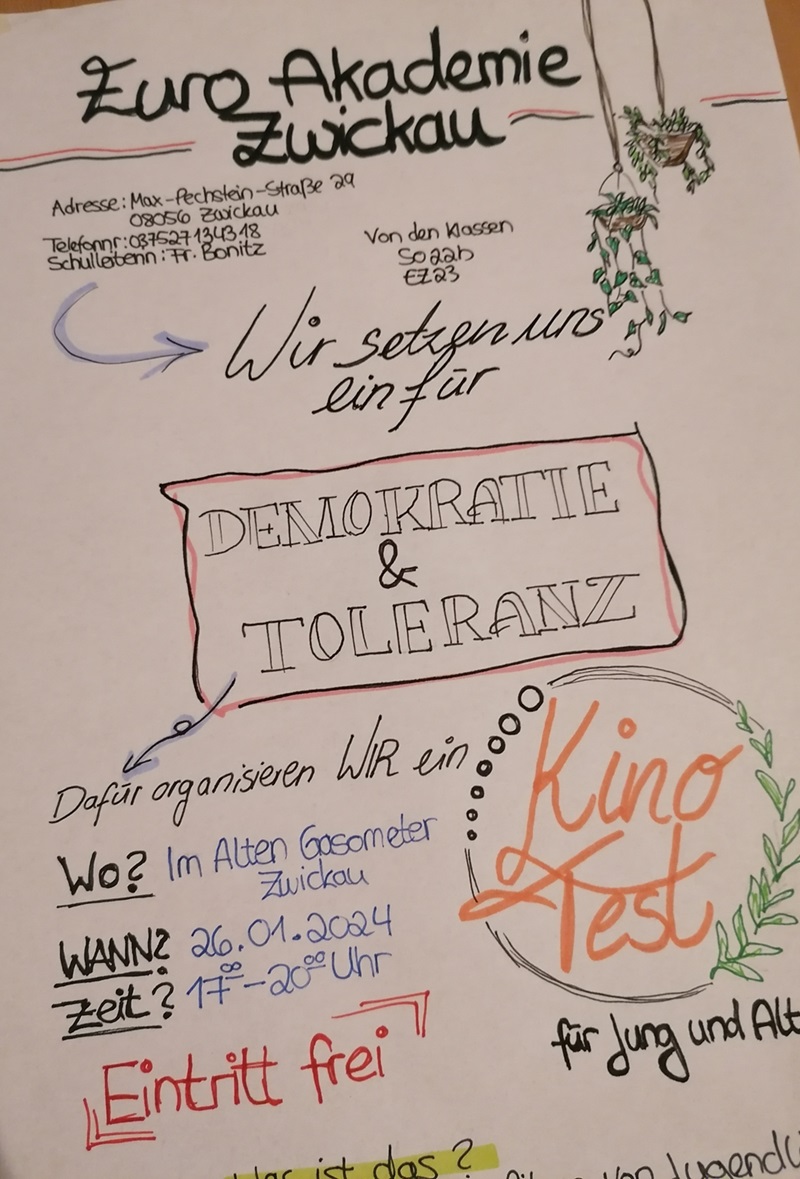 Euro Akademie
Zwickau
Adresse: Max-Pechstein-Straße 29
08056 Zwickau
Telefonnr: 037527134318
Schulleiterin: Fr. Bonitz
Von den Klassen
So22b
EZ23
Wir setzen uns
ein für
DEMOKRATIE
&
TOLERANZ
Dafür organisieren WIR ein
Kino
Fest
für Jung und Alt
Wo? Im Alten Gasometer
Zwickau
WANN? 26.01.2024
Zeit? 17⁰⁰-20⁰⁰ Uhr
Eintritt frei
ist das?
von